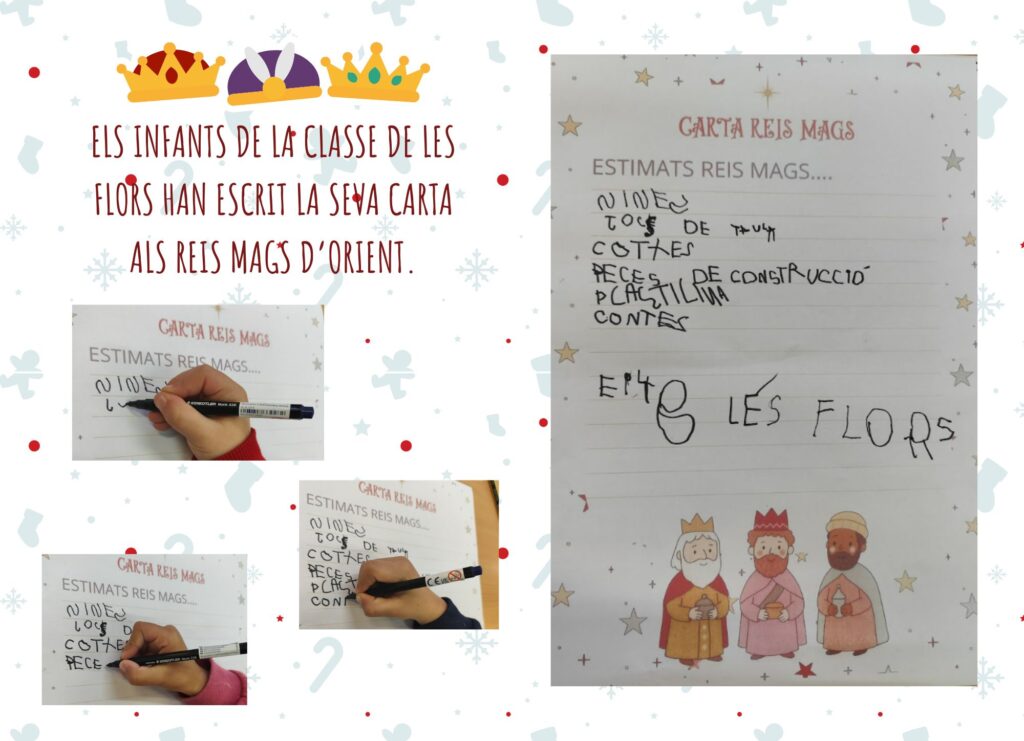 ELS INFANTS DE LA CLASSE DE LES
FLORS HAN ESCRIT LA SEVA CARTA
ALS REIS MAGS D'ORIENT.
CARTA REIS MAGS
ESTIMATS REIS MAGS....
NINE
CARTA REIS MAGS
ESTIMATS REIS MAGS....
NINES
DE TAULA
COTXES
PECES
PLAST
CONT
CARTA REIS MAGS
ESTIMATS REIS MAGS....
NINES
D
COTXES
PECE
CARTA REIS MAGS
ESTIMATS REIS MAGS....
NINES
DE TAULA
COTXES
PECES DE CONSTRUCCIÓ
PLASTILINA
CONTES
LES FLORS